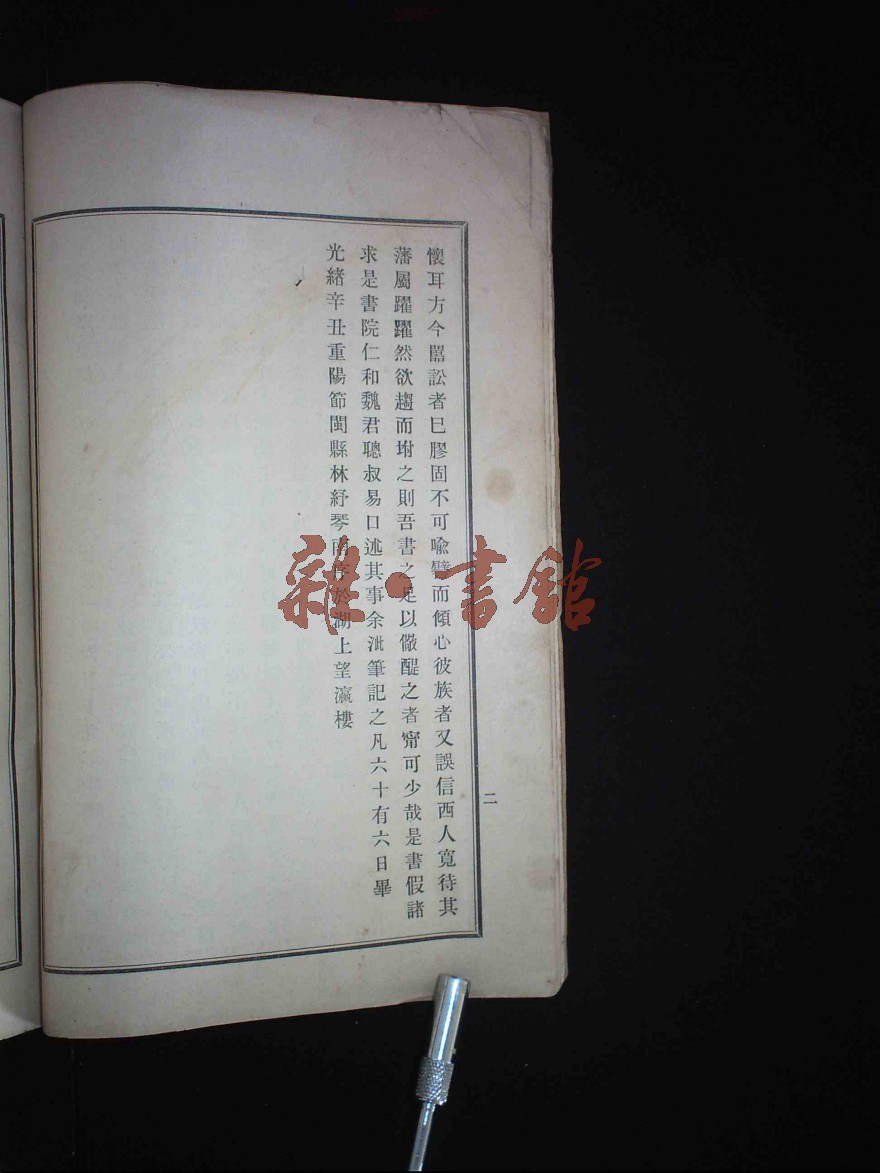 懷耳方今嚚訟者已膠固不可喩譬而傾心彼族者又誤信西人寬待其
藩屬躍躍然欲趨而坿之則吾書之足以儆醒之者甯可少哉是書假諸
求是書院仁和魏君聰叔易口述其事余泚筆記之凡六十有六日畢
光緒辛丑重陽節閩縣林紓琴南序於湖上望瀛樓
二
雜·書館